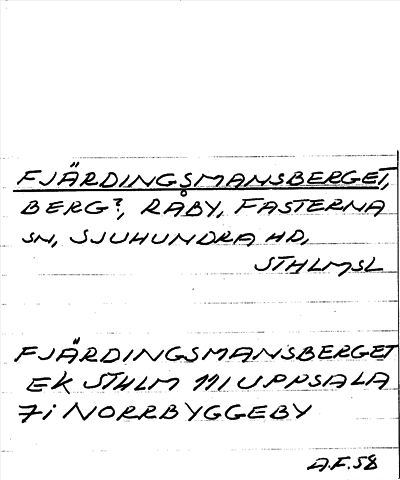 FJÄRDINGSMANSBERGET,
BERG?, RÅBY, FASTERNA
SN, SJUHUNDRA HD,
STHLMSL
FJÄRDINGSMANSBERGET
EK STHLM 11I UPPSALA
7i NORRBYGGEBY
A.F. 58